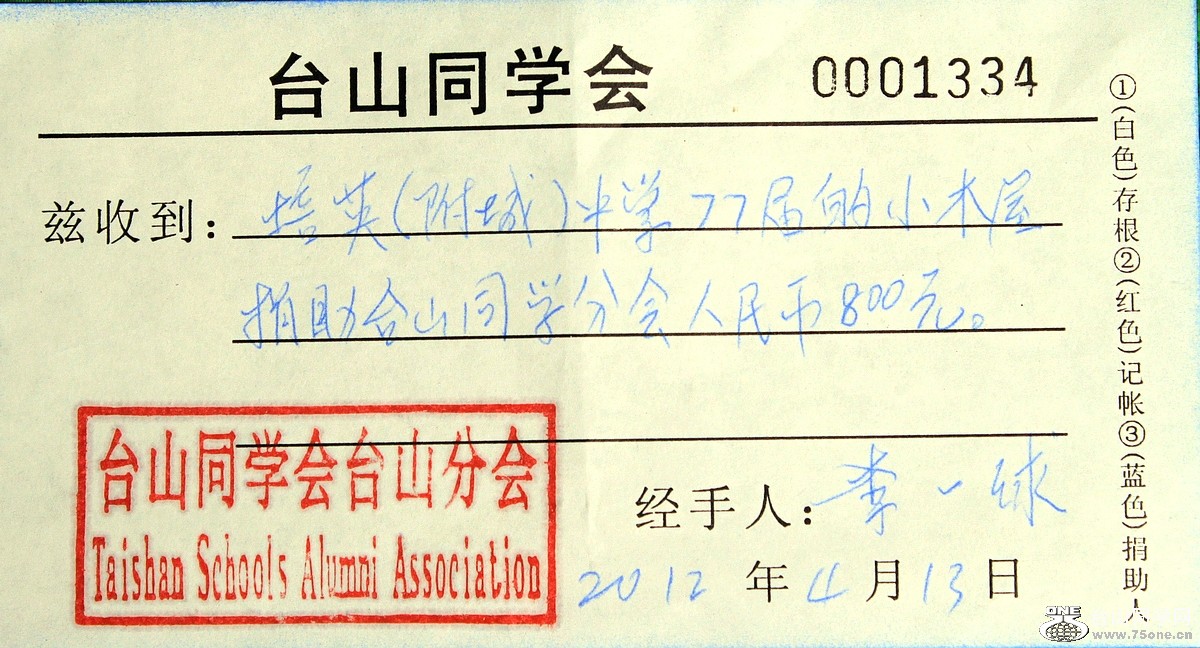 台山同学会 0001334
兹收到：培英(附城)中学77届的小木屋
捐助台山同学分会人民币800元。
台山同学会台山分会
Taishan Schools Alumni Association
经手人：李一球
2012年4月13日
①(白色)存根②(红色)记帐③(蓝色)捐助人
ONE
www.75one.cn